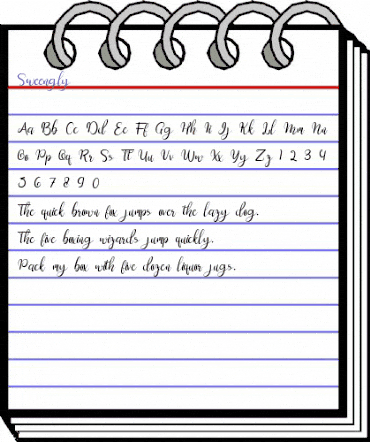 Sweengly
Aa Bb Cc Dd Ee Ff Gg Hh Ii Jj Kk Ll Mm Nn
Oo Pp Qq Rr Ss Tt Uu Vv Ww Xx Yy Zz 1 2 3 4
5 6 7 8 9 0
The quick brown fox jumps over the lazy dog.
The five boxing wizards jump quickly.
Pack my box with five dozen liquor jugs.